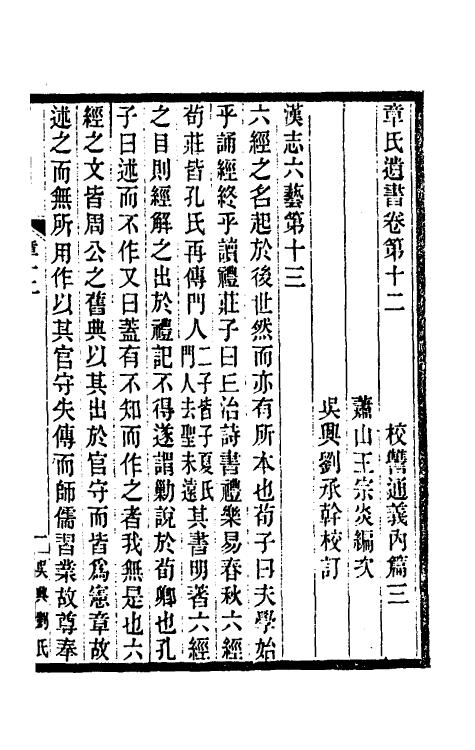 章氏遺書卷第十二　校讐通義內篇三
蕭山王宗炎編次
吳興劉承幹校訂
漢志六藝第十三
六經之名起於後世然而亦有所本也荀子曰夫學始
乎誦經終乎讀禮莊子曰丘治詩書禮樂易春秋六經
荀莊皆孔氏再傳門人二子皆子夏氏門人去聖未遠其書明著六經
之目則經解之出於禮記不得遂謂勦說於荀卿也孔
子曰述而不作又曰蓋有不知而作之者我無是也六
經之文皆周公之舊典以其出於官守而皆爲憲章故
述之而無所用作以其官守失傳而師儒習業故尊奉
章十二
一
吳興劉氏